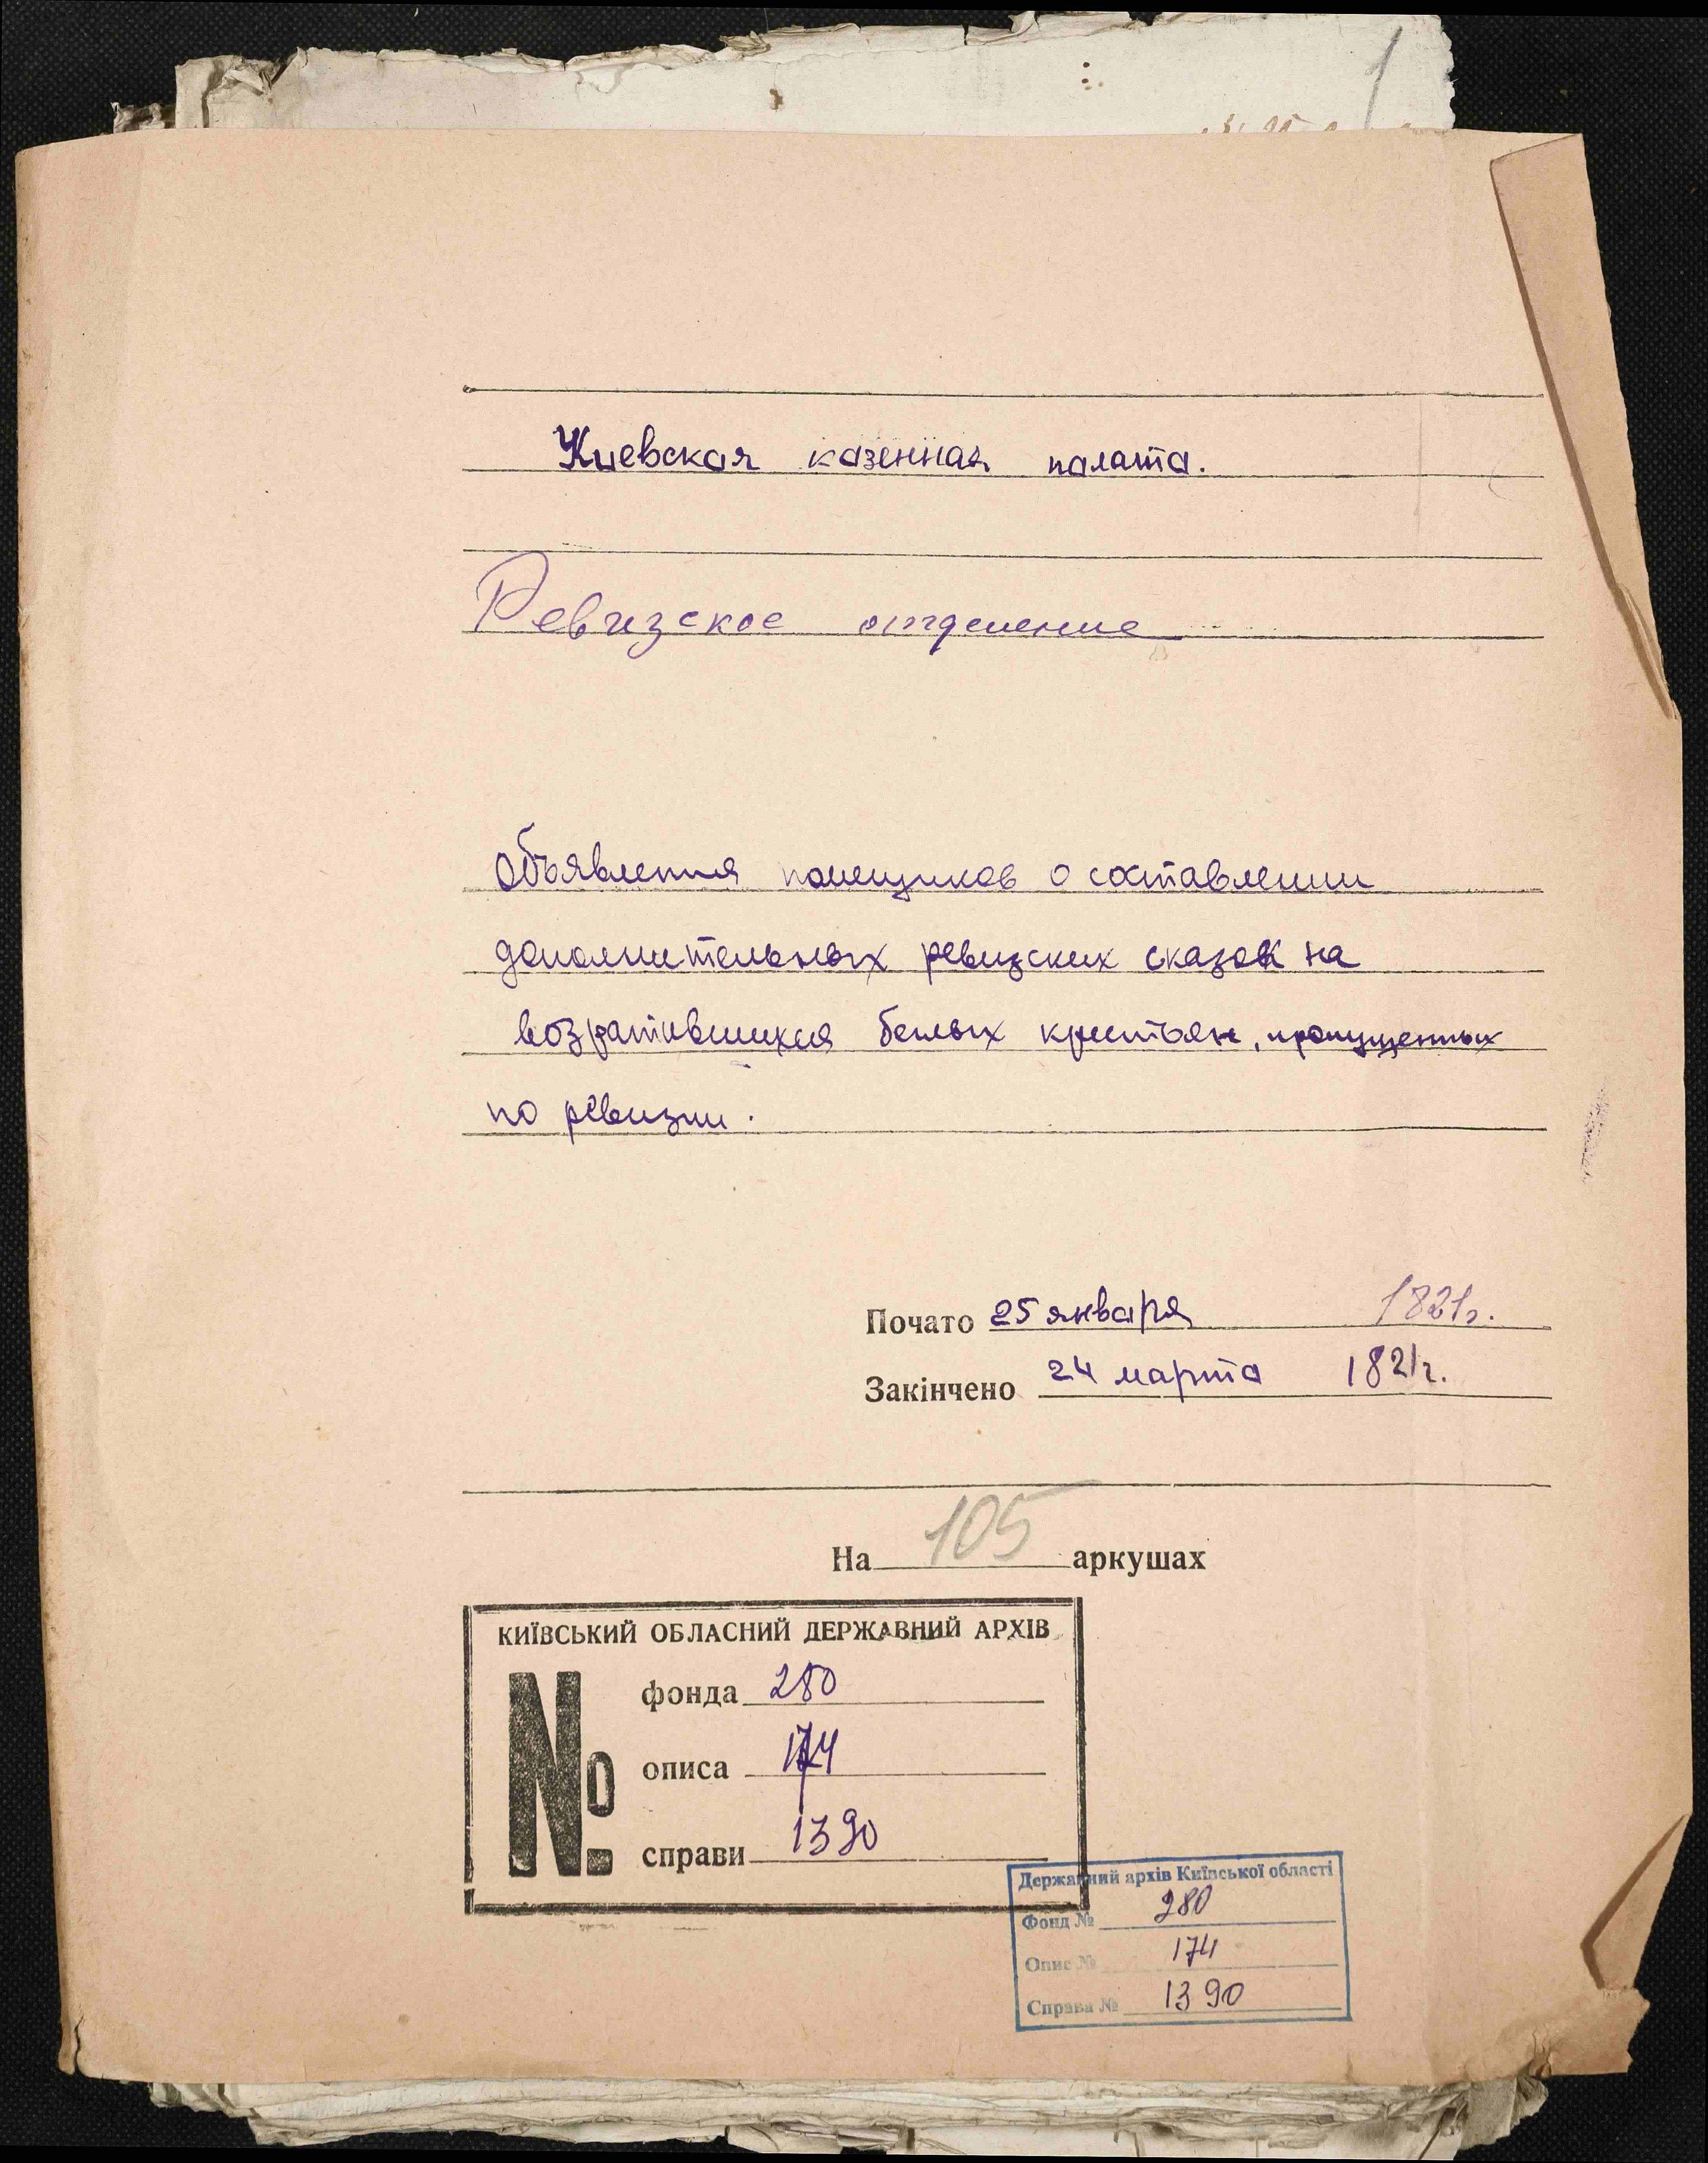 1
Киевская казенная палата.
Ревизское отделение
Объявления помещиков о составлении
дополнительных ревизских сказок на
возратившихся беглых крестьян, пропущенных
по ревизии.
Почато 25 января 1821г.
Закінчено 24 марта 1821г.
На 105 аркушах
КИЇВСЬКИЙ ОБЛАСНИЙ ДЕРЖАВНИЙ АРХІВ
№
фонда 280
описа 174
справи 1390
Державний архів Київської області
Фонд № 280
Опис № 174
Справа № 1390